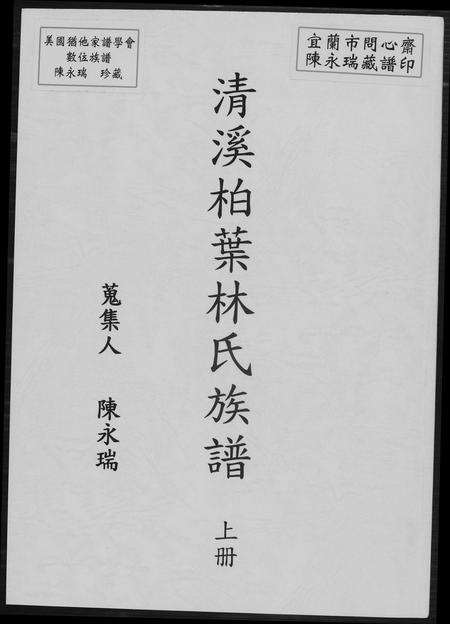 宜蘭市問心齋
陳永瑞藏譜印
美國猶他家譜學會
數位族譜
陳永瑞 珍藏
清溪柏葉林氏族譜
上冊
蒐集人 陳永瑞